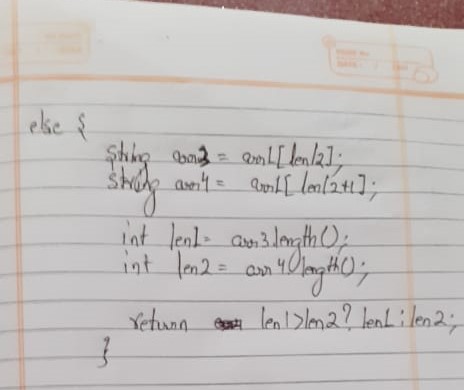 else {
string arr3 = arr1[len/2];
string arr4 = arr1[len/2+1];
int len1 = arr3.length();
int len2 = arr4.length();
return len1>len2? len1 : len2;
}